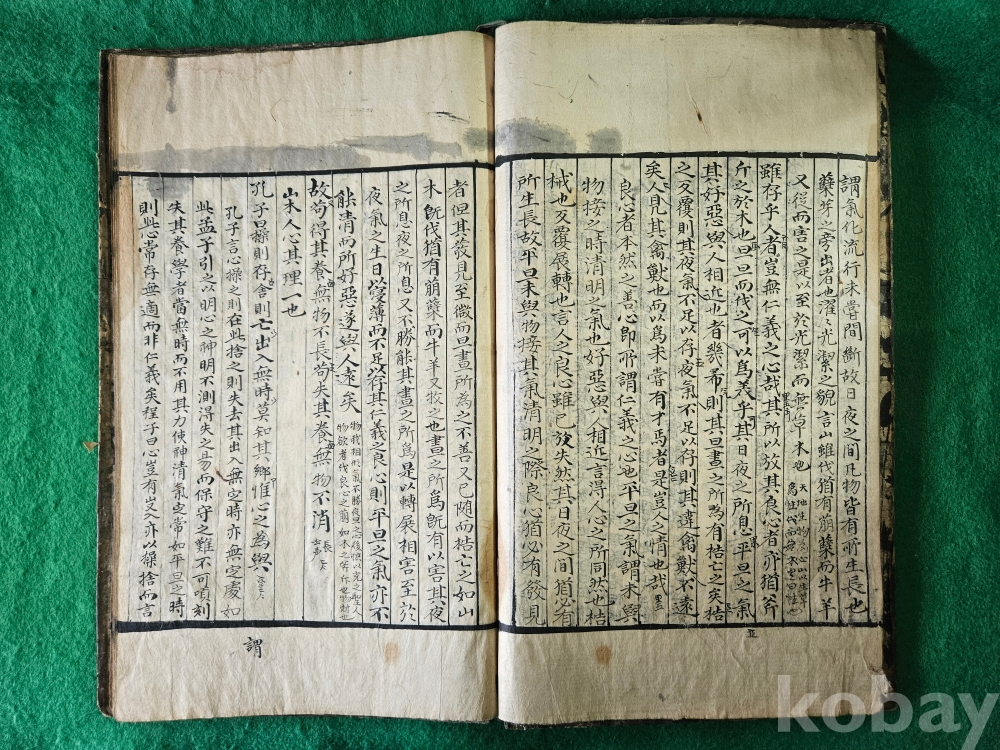 謂氣化流行未嘗間斷故日夜之間凡物皆有所生長也
蘖芽之旁出者也濯濯光潔之貌言山雖伐猶有萌蘖而牛羊
又從而害之是以至於光潔而無草木也
雖存乎人者豈無仁義之心哉其所以放其良心者亦猶斧
斤之於木也旦旦而伐之可以爲美乎其日夜之所息平旦之氣
其好惡與人相近也者幾希則其旦晝之所爲有梏亡之矣梏
之反覆則其夜氣不足以存夜氣不足以存則其違禽獸不遠
矣人見其禽獸也而以爲未嘗有才焉者是豈人之情也哉
良心者本然之善心卽所謂仁義之心也平旦之氣謂未與
物接之時淸明之氣也好惡與人相近言得人心之所同然也梏
械也反覆展轉也言人之良心雖已放失然其日夜之間猶必有
所生長故平旦未與物接其氣淸明之際良心猶必有發見
者但其發見至微而旦晝所為之不善又已隨而梏亡之如山
木旣伐猶有萌蘖而牛羊又牧之也晝之所爲旣有以害其夜
之所息夜之所息又不勝能其晝之所爲是以轉展相害至於
夜氣之生日以寖薄而不足以存其仁義之良心則平旦之氣亦不
能淸而所好惡遂與人遠矣
故苟得其養無物不長苟失其養無物不消
山木人心其理一也
孔子曰操則存舍則亡出入無時莫知其鄕惟心之為與
孔子言心操之則在此捨之則失去其出入無定時亦無定處如
此孟子引之以明心之神明不測得失之易而保守之難不可頃刻
失其養學者當無時而不用其力使神淸氣定常如平旦之時
則此心常存無適而非仁義矣程子曰心豈有出入亦以操捨而言
謂
kobay